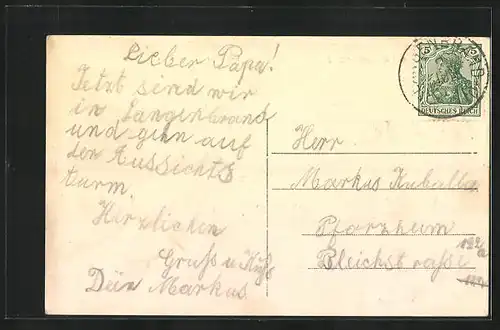 Lieber Papa!
Jetzt sind wir
in Langenbrand
und gehn auf
den Aussichts
turm.
Herzlichen
Gruß u. Kuß
Dein Markus
5
5
DEUTSCHES REICH
Herr
Markus
Pforzheim
Bleichstraße